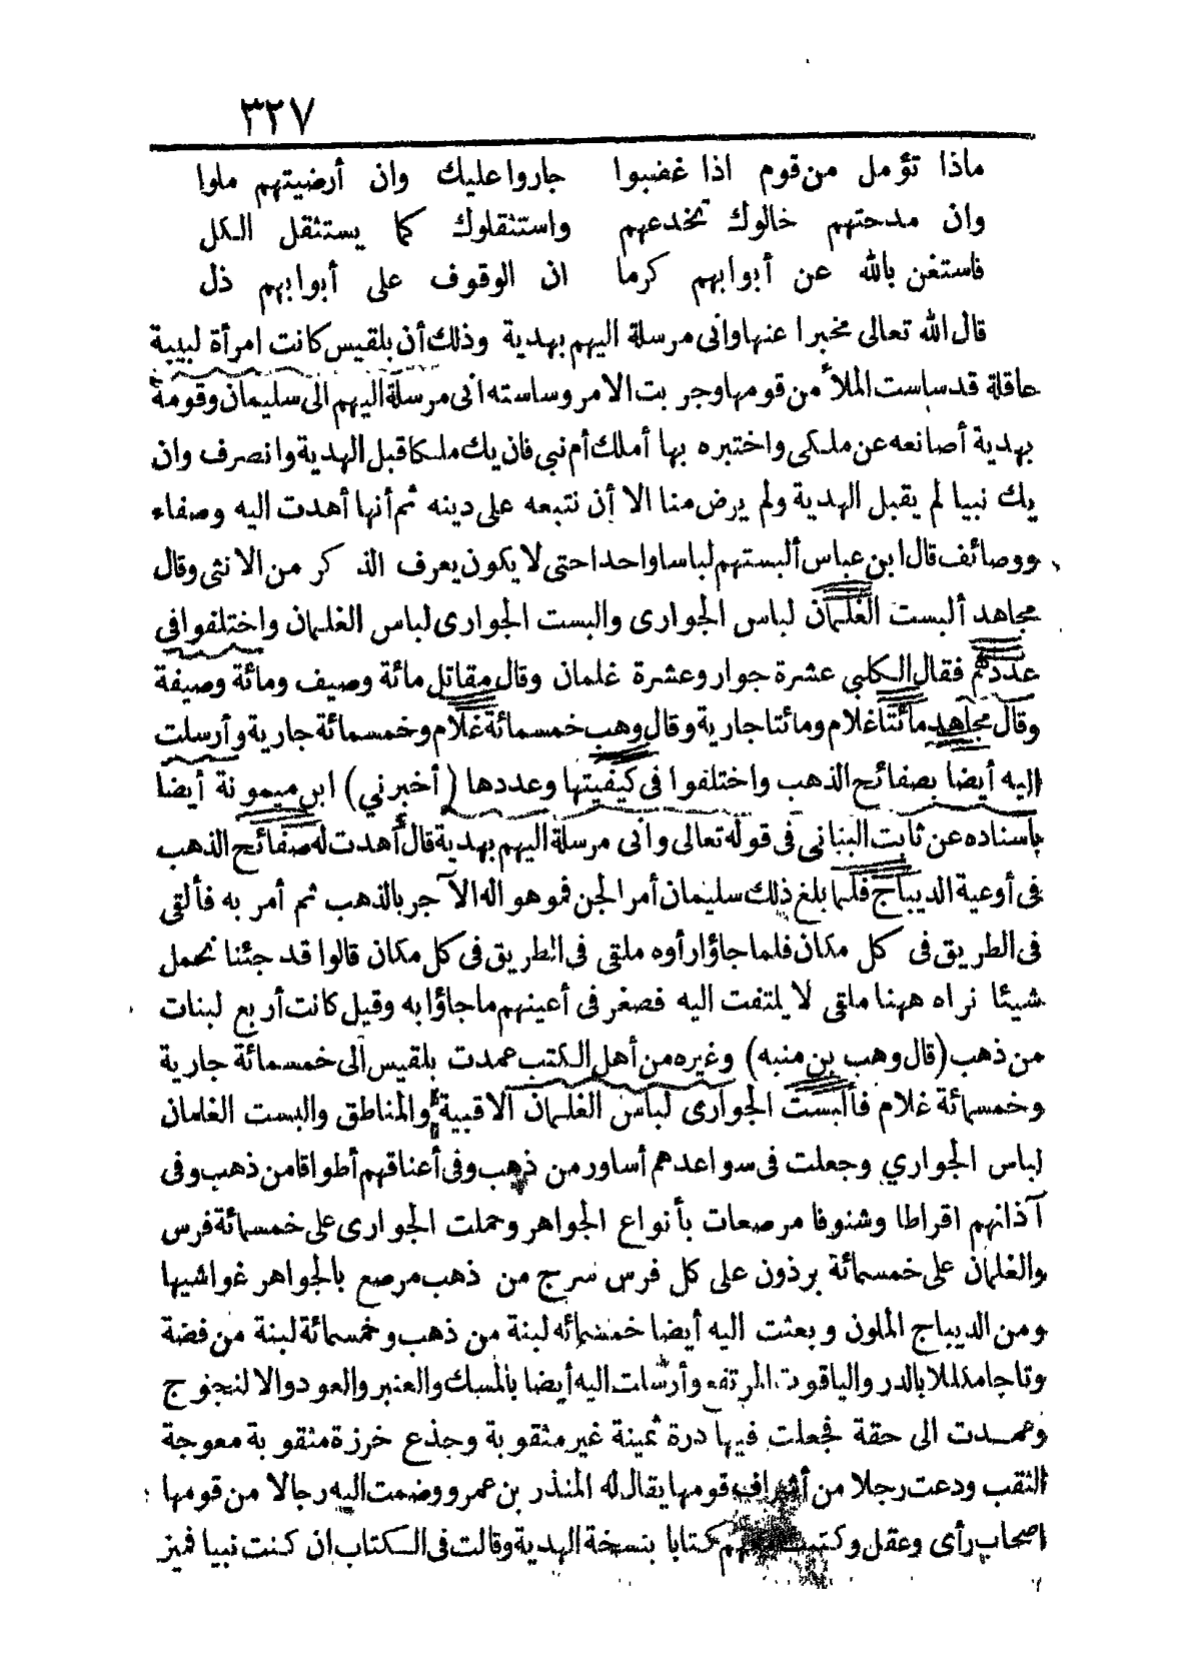 ٣٢٧
ماذا تؤمل من قوم اذا غضبوا جاروا عليك وان أرضيتهم ملوا
وان مدحتهم خالوك تخدعهم واستثقلوك كما يستثقل الكل
فاستغن بالله عن أبوابهم كرما ان الوقوف على أبوابهم ذل
قال الله تعالى مخبرا عنها وانى مرسلة اليهم بهدية وذلك أن بلقيس كانت امرأة لبيبة
عاقلة قد ساست الملأ من قومها وجربت الامر وساسته انى مرسلة اليهم الى سليمان وقومه
بهدية أصانعه عن ملكى واختبره بها أملك أم نبى فان يك ملكا قبل الهدية وانصرف وان
يك نبيا لم يقبل الهدية ولم يرض منا الا أن نتبعه على دينه ثم أنها أهدت اليه وصفاء
ووصائف قال ابن عباس ألبستهم لباسا واحدا حتى لا يكون يعرف الذكر من الانثى وقال
مجاهد ألبست الغلمان لباس الجوارى والبست الجوارى لباس الغلمان واختلفوا فى
عددهم فقال الكلبى عشرة جوار وعشرة غلمان وقال مقاتل مائة وصيف ومائة وصيفة
وقال مجاهد مائتا غلام ومائتا جارية وقال وهب خمسمائة غلام وخمسمائة جارية وأرسلت
اليه أيضا بصفائح الذهب واختلفوا فى كيفيتها وعددها (أخبرني) ابن ميمونة أيضا
باسناده عن ثابت البنانى فى قوله تعالى وانى مرسلة اليهم بهدية قال أهدت له صفائح الذهب
فى أوعية الديباج فلما بلغ ذلك سليمان أمر الجن فموهوا له الآجر بالذهب ثم أمر به فألقى
فى الطريق فى كل مكان فلما جاؤا رأوه ملقى فى الطريق فى كل مكان قالوا قد جئنا نحمل
شيئا نراه ههنا ملقى لا يلتفت اليه فصغر فى أعينهم ما جاؤا به وقيل كانت أربع لبنات
من ذهب (قال وهب بن منبه) وغيره من أهل الكتب عمدت بلقيس الى خمسمائة جارية
وخمسمائة غلام فألبست الجوارى لباس الغلمان الاقبية والمناطق والبست الغلمان
لباس الجواري وجعلت فى سواعدهم أساور من ذهب وفى أعناقهم أطواقا من ذهب وفى
آذانهم اقراطا وشنوفا مرصعات بأنواع الجواهر وحملت الجوارى على خمسمائة فرس
والغلمان على خمسمائة برذون على كل فرس سرج من ذهب مرصع بالجواهر غواشيها
ومن الديباج الملون وبعثت اليه أيضا خمسمائه لبنة من ذهب وخمسمائة لبنة من فضة
وتاجا مكللا بالدر والياقوت المرتفع وأرسلت اليه أيضا بالمسك والعنبر والعود والالنجوج
وعمدت الى حقة فجعلت فيها درة ثمينة غير مثقوبة وجذع خرزة مثقوبة معوجة
الثقب ودعت رجلا من أشراف قومها يقال له المنذر بن عمرو وضمت اليه رجالا من قومها
اصحاب رأى وعقل وكتبت معهم كتابا بنسخة الهدية وقالت فى الكتاب ان كنت نبيا فميز